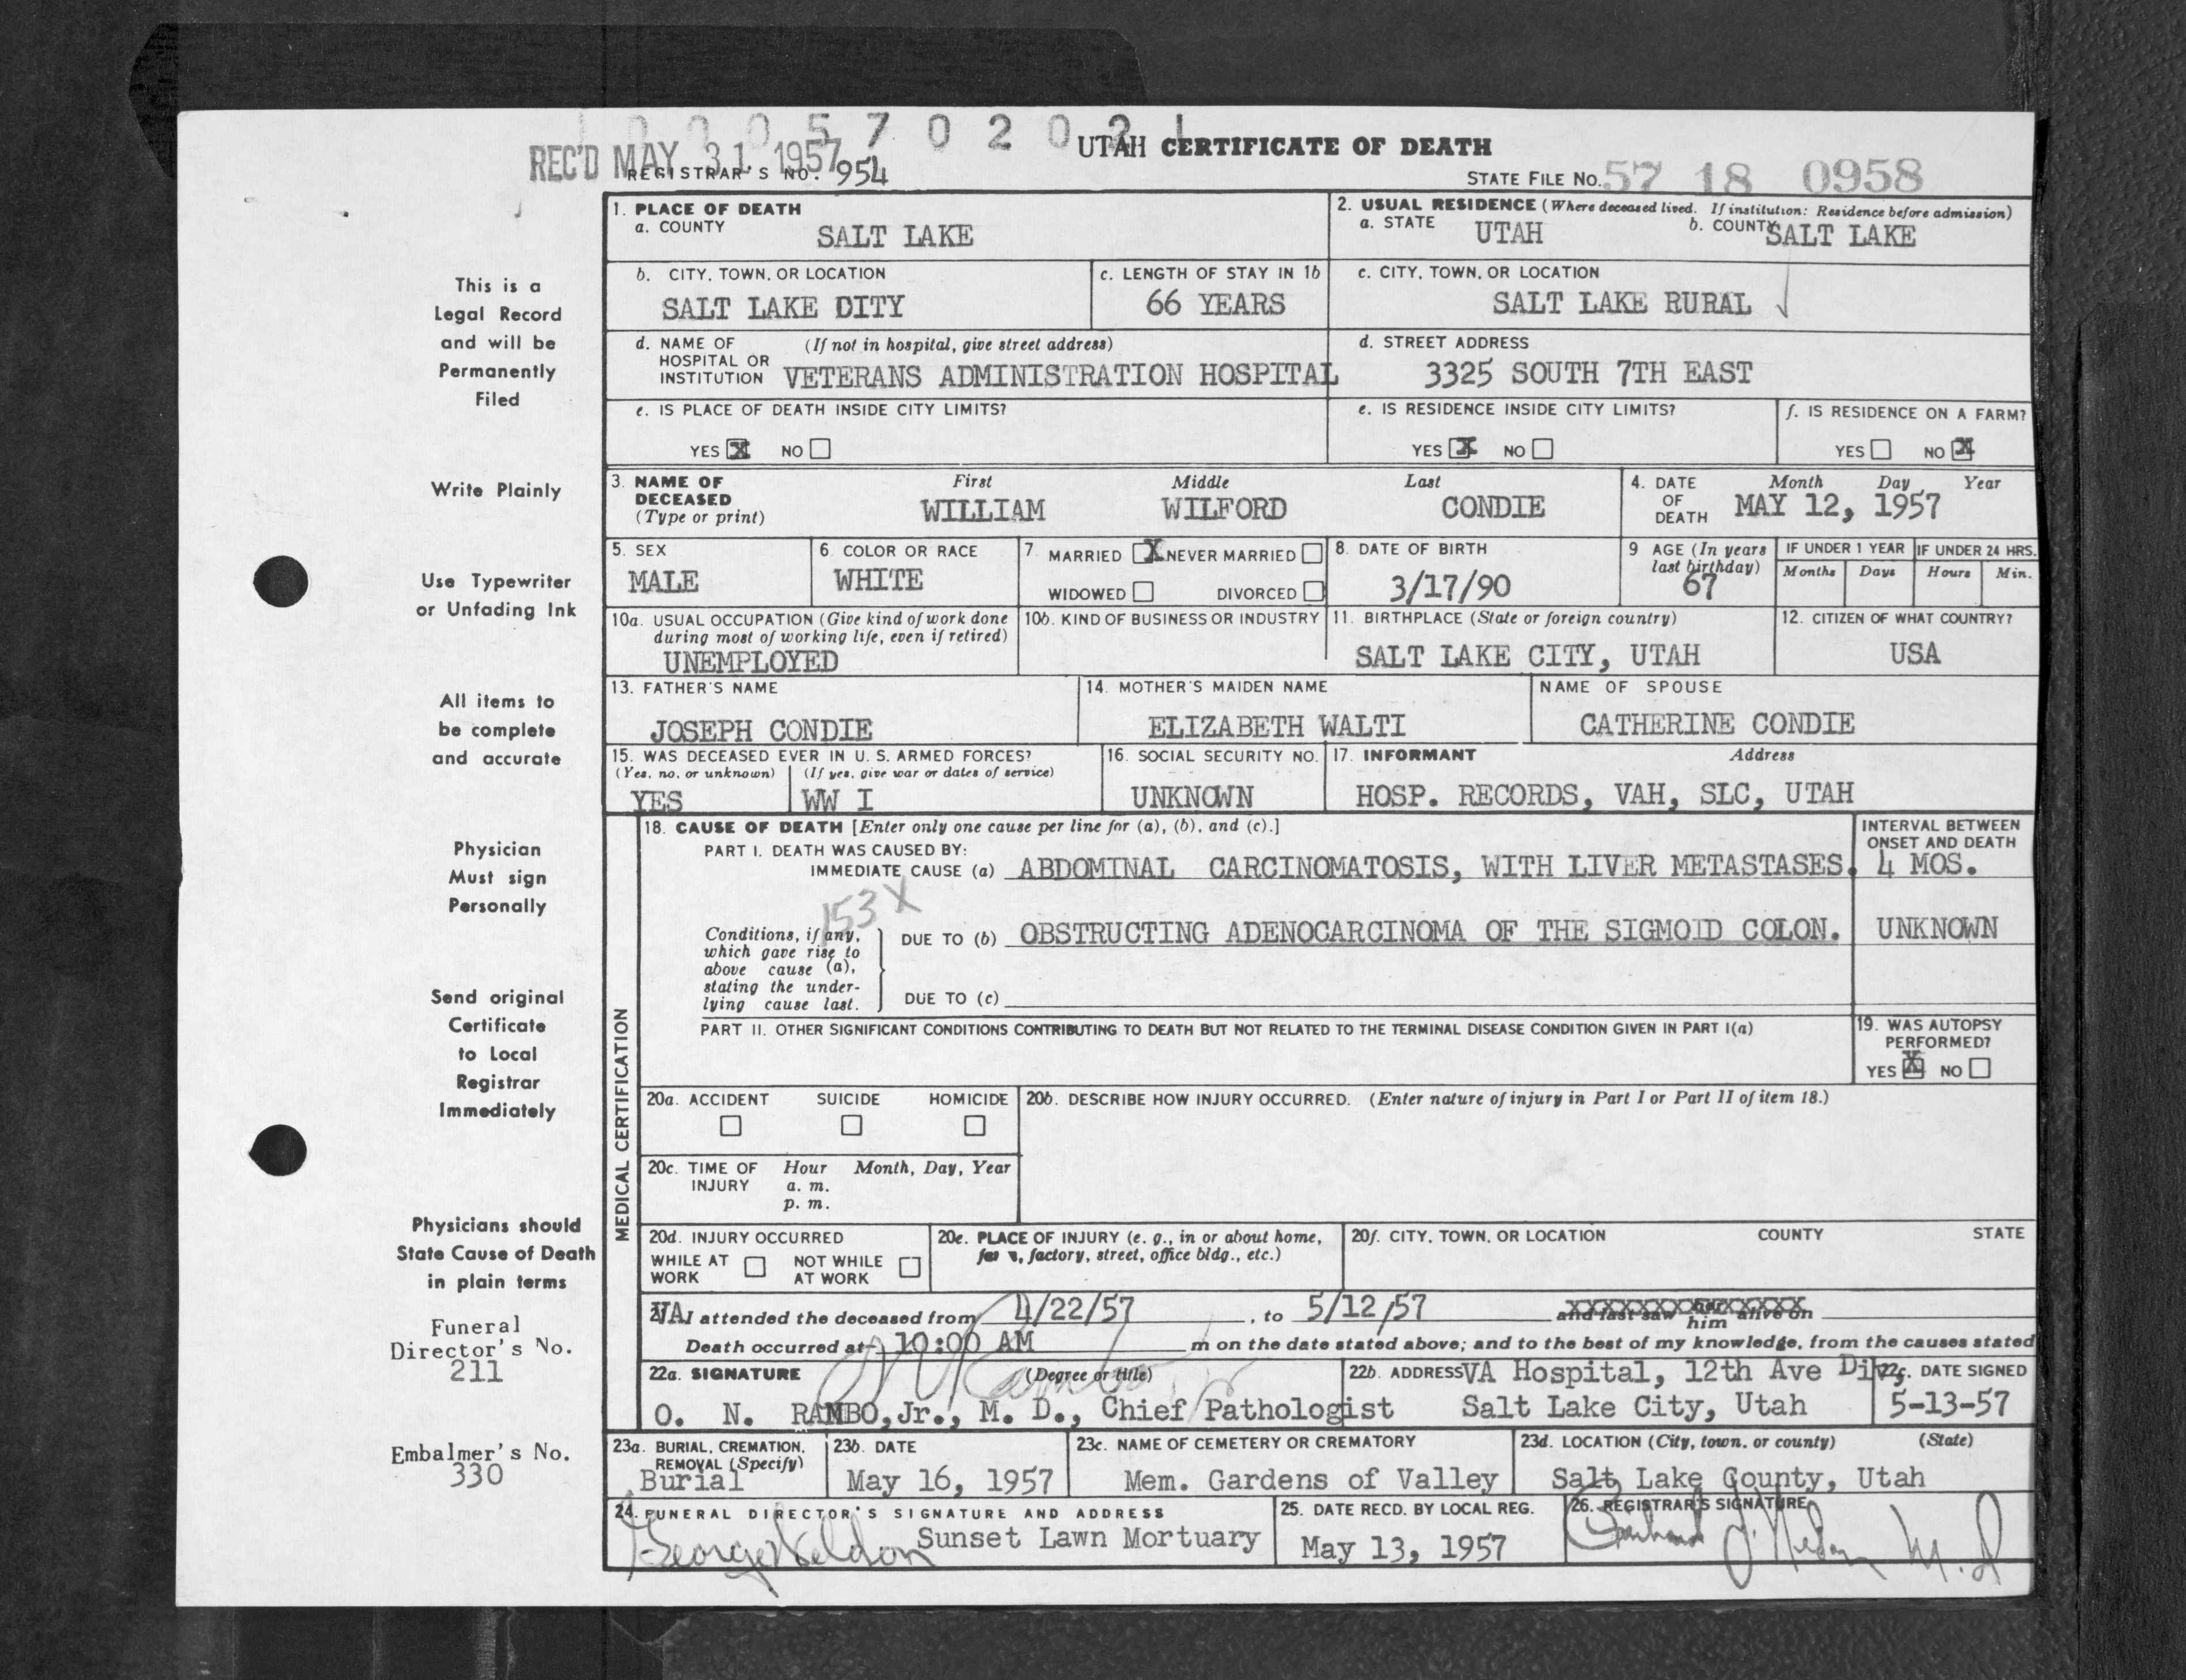 1 0 0 0 5 7 0 2 0 2 1
UTAH CERTIFICATE OF DEATH
REC'D MAY 31 1957
REGISTRAR'S NO. 954
STATE FILE NO. 57 18 0958
This is a
Legal Record
and will be
Permanently
Filed
Write Plainly
Use Typewriter
or Unfading Ink
All items to
be complete
and accurate
Physician
Must sign
Personally
Send original
Certificate
to Local
Registrar
Immediately
Physicians should
State Cause of Death
in plain terms
Funeral
Director's No.
211
Embalmer's No.
330
1. PLACE OF DEATH
a. COUNTY SALT LAKE
2. USUAL RESIDENCE (Where deceased lived. If institution: Residence before admission)
a. STATE UTAH b. COUNTY SALT LAKE
b. CITY, TOWN, OR LOCATION
SALT LAKE DITY
c. LENGTH OF STAY IN 1b
66 YEARS
c. CITY, TOWN, OR LOCATION
SALT LAKE RURAL ✓
d. NAME OF (If not in hospital, give street address)
HOSPITAL OR
INSTITUTION VETERANS ADMINISTRATION HOSPITAL
d. STREET ADDRESS
3325 SOUTH 7TH EAST
e. IS PLACE OF DEATH INSIDE CITY LIMITS?
YES X NO
e. IS RESIDENCE INSIDE CITY LIMITS?
YES X NO
f. IS RESIDENCE ON A FARM?
YES NO X
3. NAME OF DECEASED (Type or print)
First Middle Last
WILLIAM WILFORD CONDIE
4. DATE OF DEATH
Month Day Year
MAY 12, 1957
5. SEX
MALE
6. COLOR OR RACE
WHITE
7. MARRIED X NEVER MARRIED
WIDOWED DIVORCED
8. DATE OF BIRTH
3/17/90
9 AGE (In years
last birthday)
67
IF UNDER 1 YEAR
Months Days
IF UNDER 24 HRS.
Hours Min.
10a. USUAL OCCUPATION (Give kind of work done
during most of working life, even if retired)
UNEMPLOYED
10b. KIND OF BUSINESS OR INDUSTRY
11. BIRTHPLACE (State or foreign country)
SALT LAKE CITY, UTAH
12. CITIZEN OF WHAT COUNTRY?
USA
13. FATHER'S NAME
JOSEPH CONDIE
14. MOTHER'S MAIDEN NAME
ELIZABETH WALTI
NAME OF SPOUSE
CATHERINE CONDIE
15. WAS DECEASED EVER IN U. S. ARMED FORCES?
(Yes, no, or unknown) (If yes, give war or dates of service)
YES WW I
16. SOCIAL SECURITY NO.
UNKNOWN
17. INFORMANT Address
HOSP. RECORDS, VAH, SLC, UTAH
MEDICAL CERTIFICATION
18. CAUSE OF DEATH [Enter only one cause per line for (a), (b), and (c).]
INTERVAL BETWEEN
ONSET AND DEATH
PART I. DEATH WAS CAUSED BY:
IMMEDIATE CAUSE (a) ABDOMINAL CARCINOMATOSIS, WITH LIVER METASTASES. 4 MOS.
153X
Conditions, if any,
which gave rise to
above cause (a),
stating the under-
lying cause last.
DUE TO (b) OBSTRUCTING ADENOCARCINOMA OF THE SIGMOID COLON. UNKNOWN
DUE TO (c)
PART II. OTHER SIGNIFICANT CONDITIONS CONTRIBUTING TO DEATH BUT NOT RELATED TO THE TERMINAL DISEASE CONDITION GIVEN IN PART I(a)
19. WAS AUTOPSY
PERFORMED?
YES X NO
20a. ACCIDENT SUICIDE HOMICIDE
20b. DESCRIBE HOW INJURY OCCURRED. (Enter nature of injury in Part I or Part II of item 18.)
20c. TIME OF INJURY
Hour Month, Day, Year
a. m.
p. m.
20d. INJURY OCCURRED
WHILE AT WORK NOT WHILE AT WORK
20e. PLACE OF INJURY (e. g., in or about home,
farm, factory, street, office bldg., etc.)
20f. CITY, TOWN, OR LOCATION COUNTY STATE
VA I attended the deceased from 4/22/57, to 5/12/57 and last saw her him alive on
Death occurred at 10:00 AM m on the date stated above; and to the best of my knowledge, from the causes stated
22a. SIGNATURE (Degree or title)
O. N. RAMBO, Jr., M. D., Chief Pathologist
22b. ADDRESS VA Hospital, 12th Ave Div,
Salt Lake City, Utah
22c. DATE SIGNED
5-13-57
23a. BURIAL, CREMATION,
REMOVAL (Specify)
Burial
23b. DATE
May 16, 1957
23c. NAME OF CEMETERY OR CREMATORY
Mem. Gardens of Valley
23d. LOCATION (City, town, or county) (State)
Salt Lake County, Utah
24. FUNERAL DIRECTOR'S SIGNATURE AND ADDRESS
George Seldon Sunset Lawn Mortuary
25. DATE RECD. BY LOCAL REG.
May 13, 1957
26. REGISTRAR'S SIGNATURE
M.D